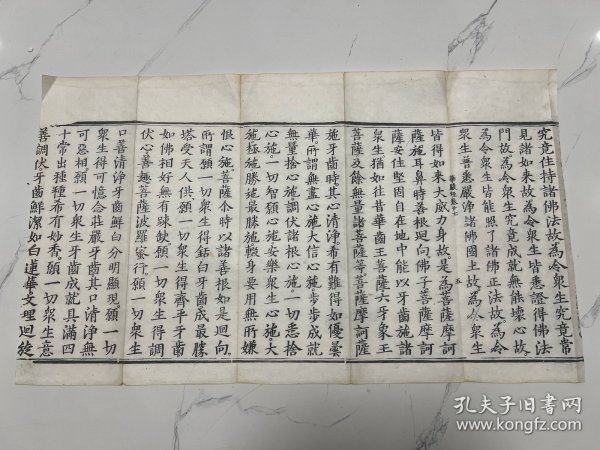 究竟住持諸佛法故為令衆生究竟常
見諸如来故為令衆生皆悉證得佛法
門故為令衆生究竟成就無能壞心故
為令衆生皆能照了諸佛正法故為令
衆生普悉嚴淨諸佛國土故為令衆生
華嚴經卷二十七 五
皆得如来大威力身故是為菩薩摩訶
薩施耳鼻時善根迴向佛子菩薩摩訶
薩安住堅固自在地中能以牙齒施諸
衆生猶如往昔華齒王菩薩六牙象王
菩薩及餘無量諸菩薩等菩薩摩訶薩
施牙齒時其心清淨希有難得如優曇
華所謂無盡心施大信心施步步成就
無量捨心施調伏諸根心施一切悉捨
心施一切智願心施安樂衆生心施大
施極施勝施最勝施輟身要用無所嫌
恨心施菩薩尒時以諸善根如是迴向
所謂願一切衆生得銛白牙齒成最勝
塔受天人供願一切衆生得齊平牙齒
如佛相好無有疎缺願一切衆生得調
伏心善趣菩薩波羅蜜行願一切衆生
口善清淨牙齒鮮白分明顯現願一切
衆生得可憶念莊嚴牙齒其口清淨無
可惡相願一切衆生牙齒成就具滿四
十常出種種希有妙香願一切衆生意
善調伏牙齒鮮潔如白蓮華文理迴旋
孔夫子旧书网
www.kongfz.com